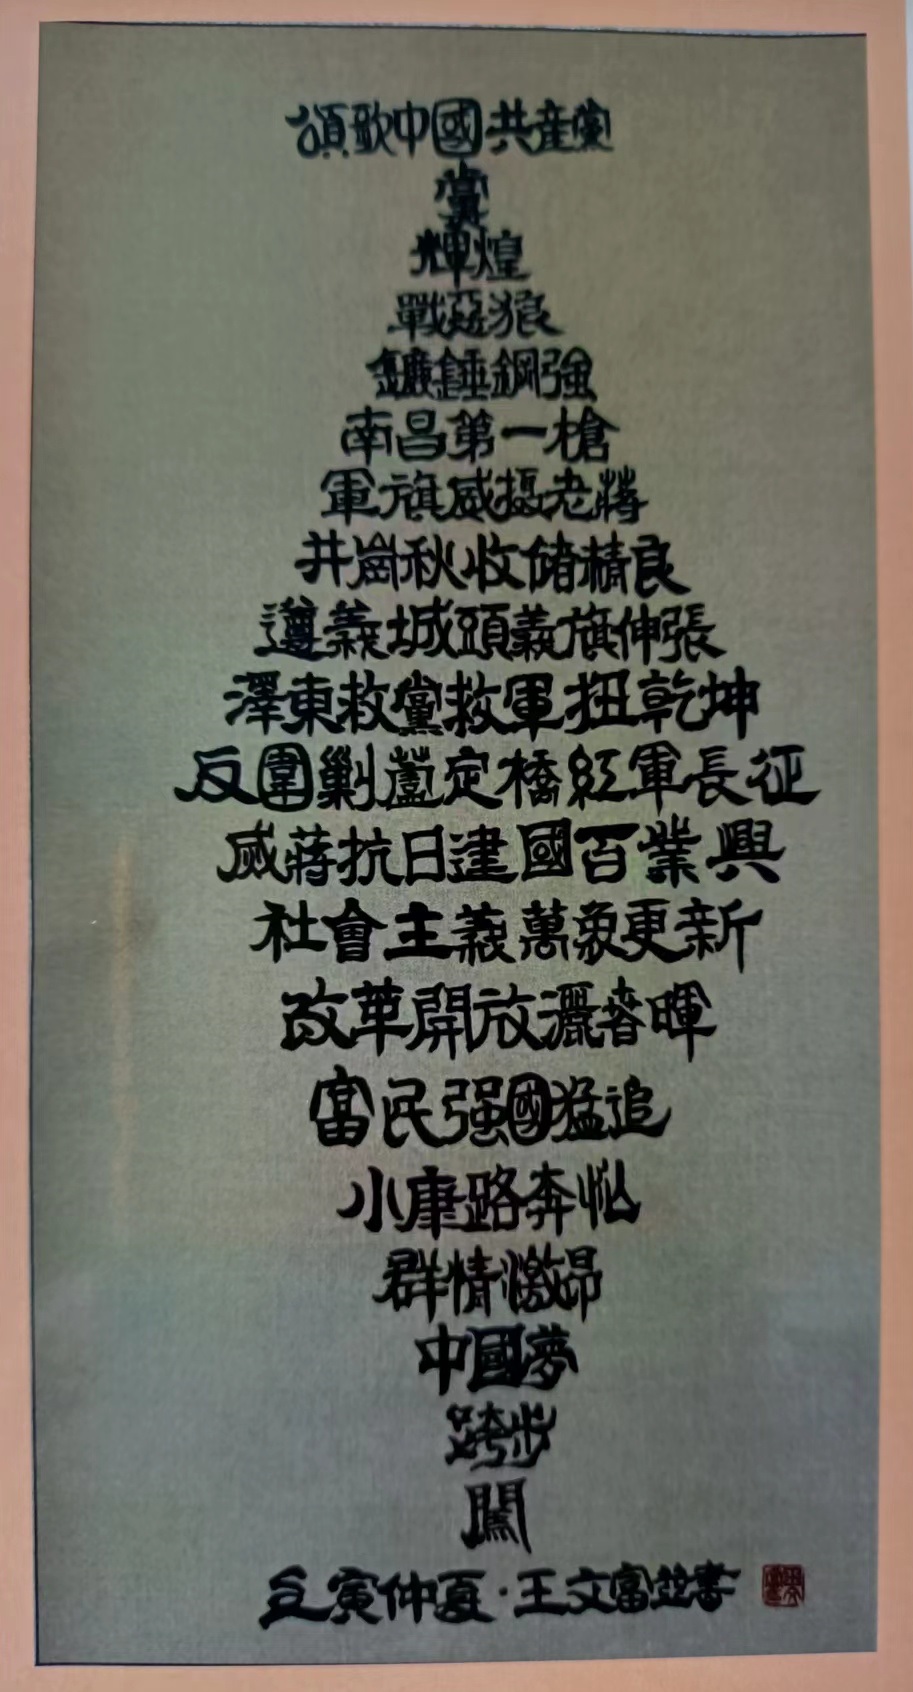 頌歌中國共産黨
黨
輝煌
戰惡狼
鑣錘鋼強
南昌第一槍
軍旗威攝老蔣
井崗秋收储精良
遵義城頭義旗伸張
澤東救黨救軍扭乾坤
反圍剿蘆定橋紅軍長征
威蔣抗日建國百業興
社會主義萬象更新
改革開放灑春暉
富民强國猛追
小康路奔忙
群情激昂
中國夢
跨步
闖
寅仲夏·王文富並書